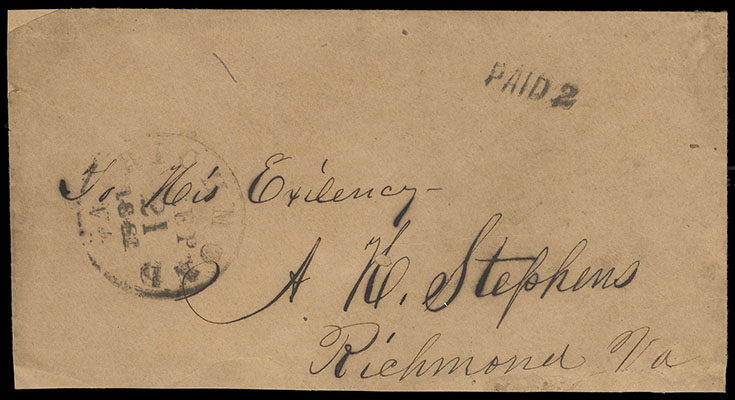 PAID 2
RICHMOND
VA.
SEP
12
1862
To His Exilency
A H. Stephens
Richmond Va